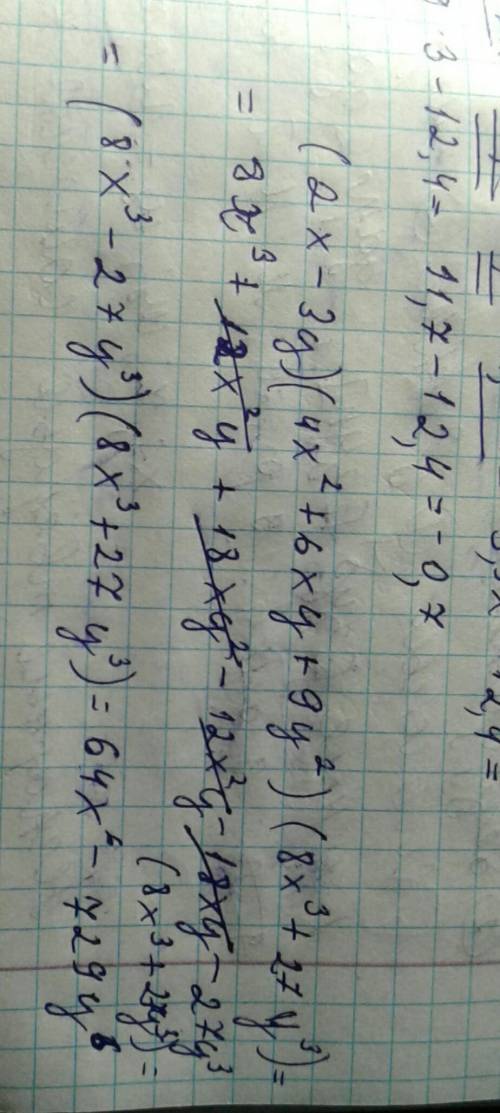 · 3 - 12,4 = 11,7 - 12,4 = - 0,7
(2x - 3y)(4x² + 6xy + 9y²)(8x³ + 27y³) =
= 8x³ + 12x²y + 18xy² - 12x²y - 18xy - 27y³
(8x³ + 27y³) =
= (8x³ - 27y³)(8x³ + 27y³) = 64x⁶ - 729y⁶